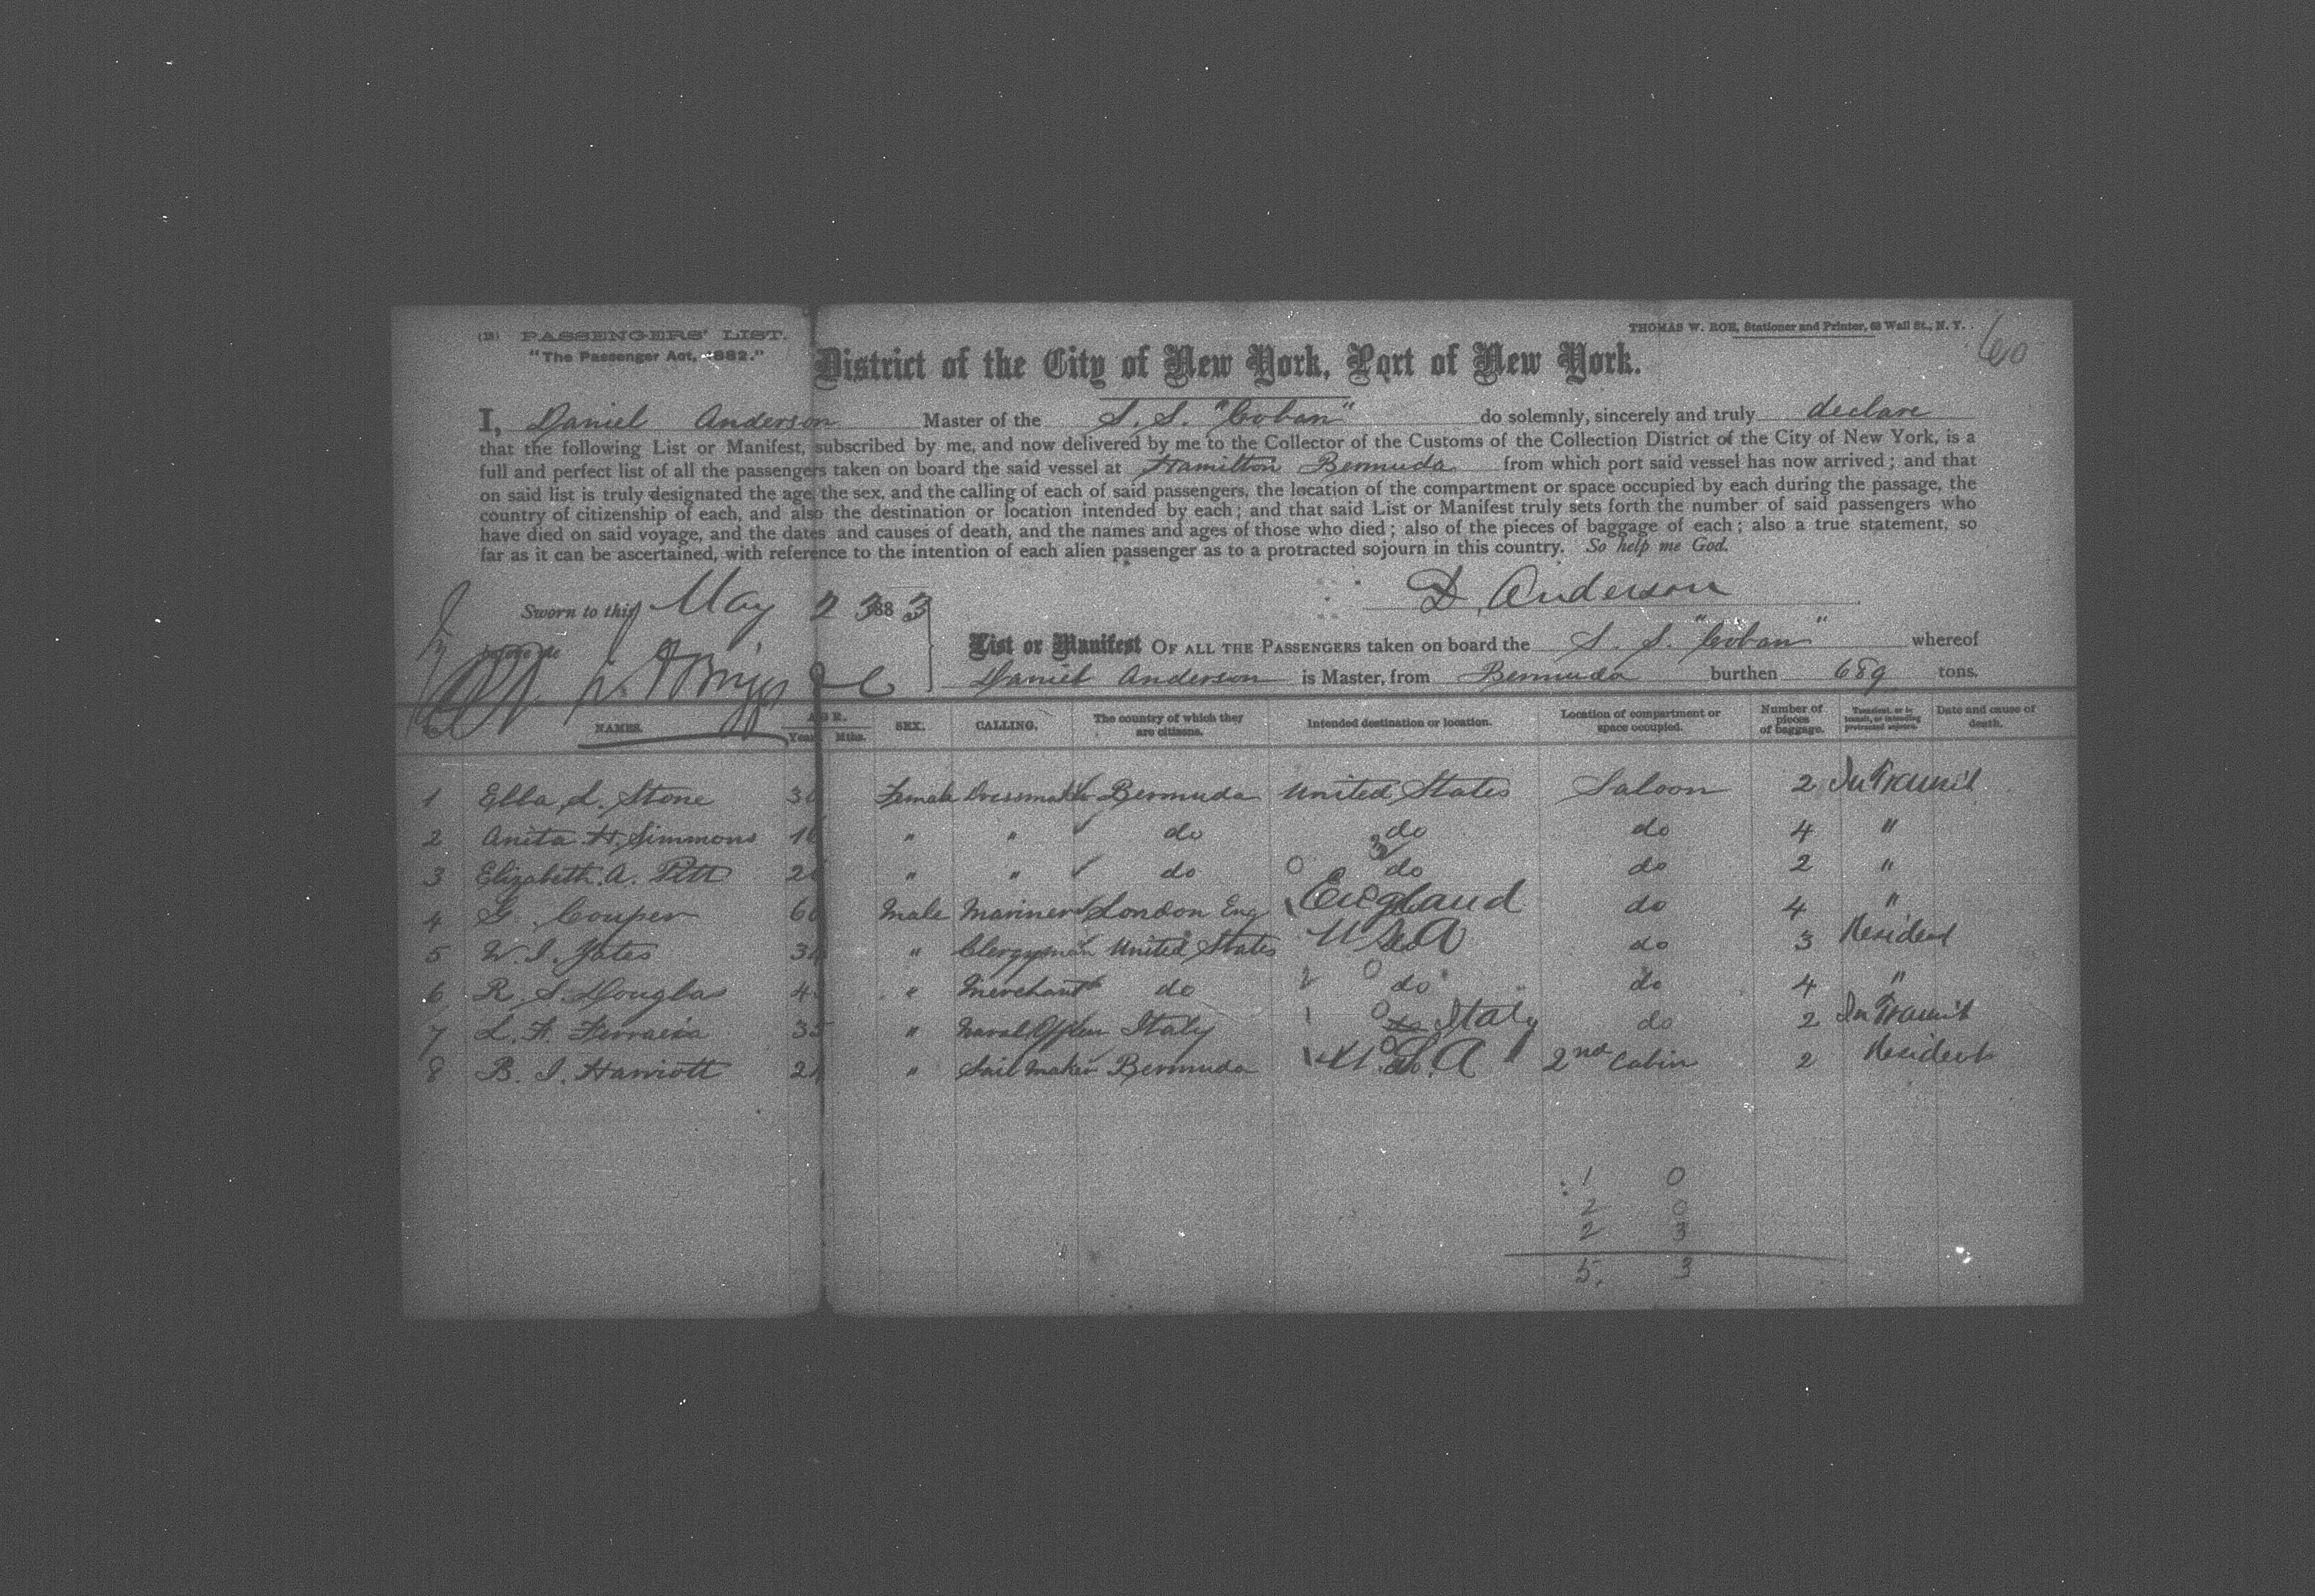 (B) PASSENGERS' LIST.
"The Passenger Act, 1882."
THOMAS W. ROE, Stationer and Printer, 63 Wall St., N. Y.
60
District of the City of New York, Port of New York.
I, Daniel Anderson Master of the S. S. "Coban" do solemnly, sincerely and truly declare
that the following List or Manifest, subscribed by me, and now delivered by me to the Collector of the Customs of the Collection District of the City of New York, is a
full and perfect list of all the passengers taken on board the said vessel at Hamilton Bermuda from which port said vessel has now arrived; and that
on said list is truly designated the age, the sex, and the calling of each of said passengers, the location of the compartment or space occupied by each during the passage, the
country of citizenship of each, and also the destination or location intended by each; and that said List or Manifest truly sets forth the number of said passengers who
have died on said voyage, and the dates and causes of death, and the names and ages of those who died; also of the pieces of baggage of each; also a true statement, so
far as it can be ascertained, with reference to the intention of each alien passenger as to a protracted sojourn in this country. So help me God.
Sworn to this May 23 1883
D. Anderson
before me
List or Manifest OF ALL THE PASSENGERS taken on board the S. S. "Coban" whereof
Daniel Anderson is Master, from Bermuda burthen 689 tons.
NAMES. AGE. Years Mths. SEX. CALLING. The country of which they are citizens. Intended destination or location. Location of compartment or space occupied. Number of pieces of baggage. Transient, or in transit, or intending protracted sojourn. Date and cause of death.
1 Ella L. Stone Female Dressmaker Bermuda United States Saloon 2 In Transit
2 Anita H. Simmons " " do do do 4 "
3 Elizabeth A. Pitt " " do do do 2 "
4 G. Couper Male Mariner London Eng England do 4 "
5 W. I. Yates " Clergyman United States USA do 3 Resident
6 R. S. Douglas " Merchant do do do 4 "
7 L. A. Ferraira 35 " Naval Officer Italy Italy do 2 In Transit
8 B. I. Harriott " Sail maker Bermuda U.S.A 2nd Cabin 2 Resident
1 0
2 0
2 3
5. 3